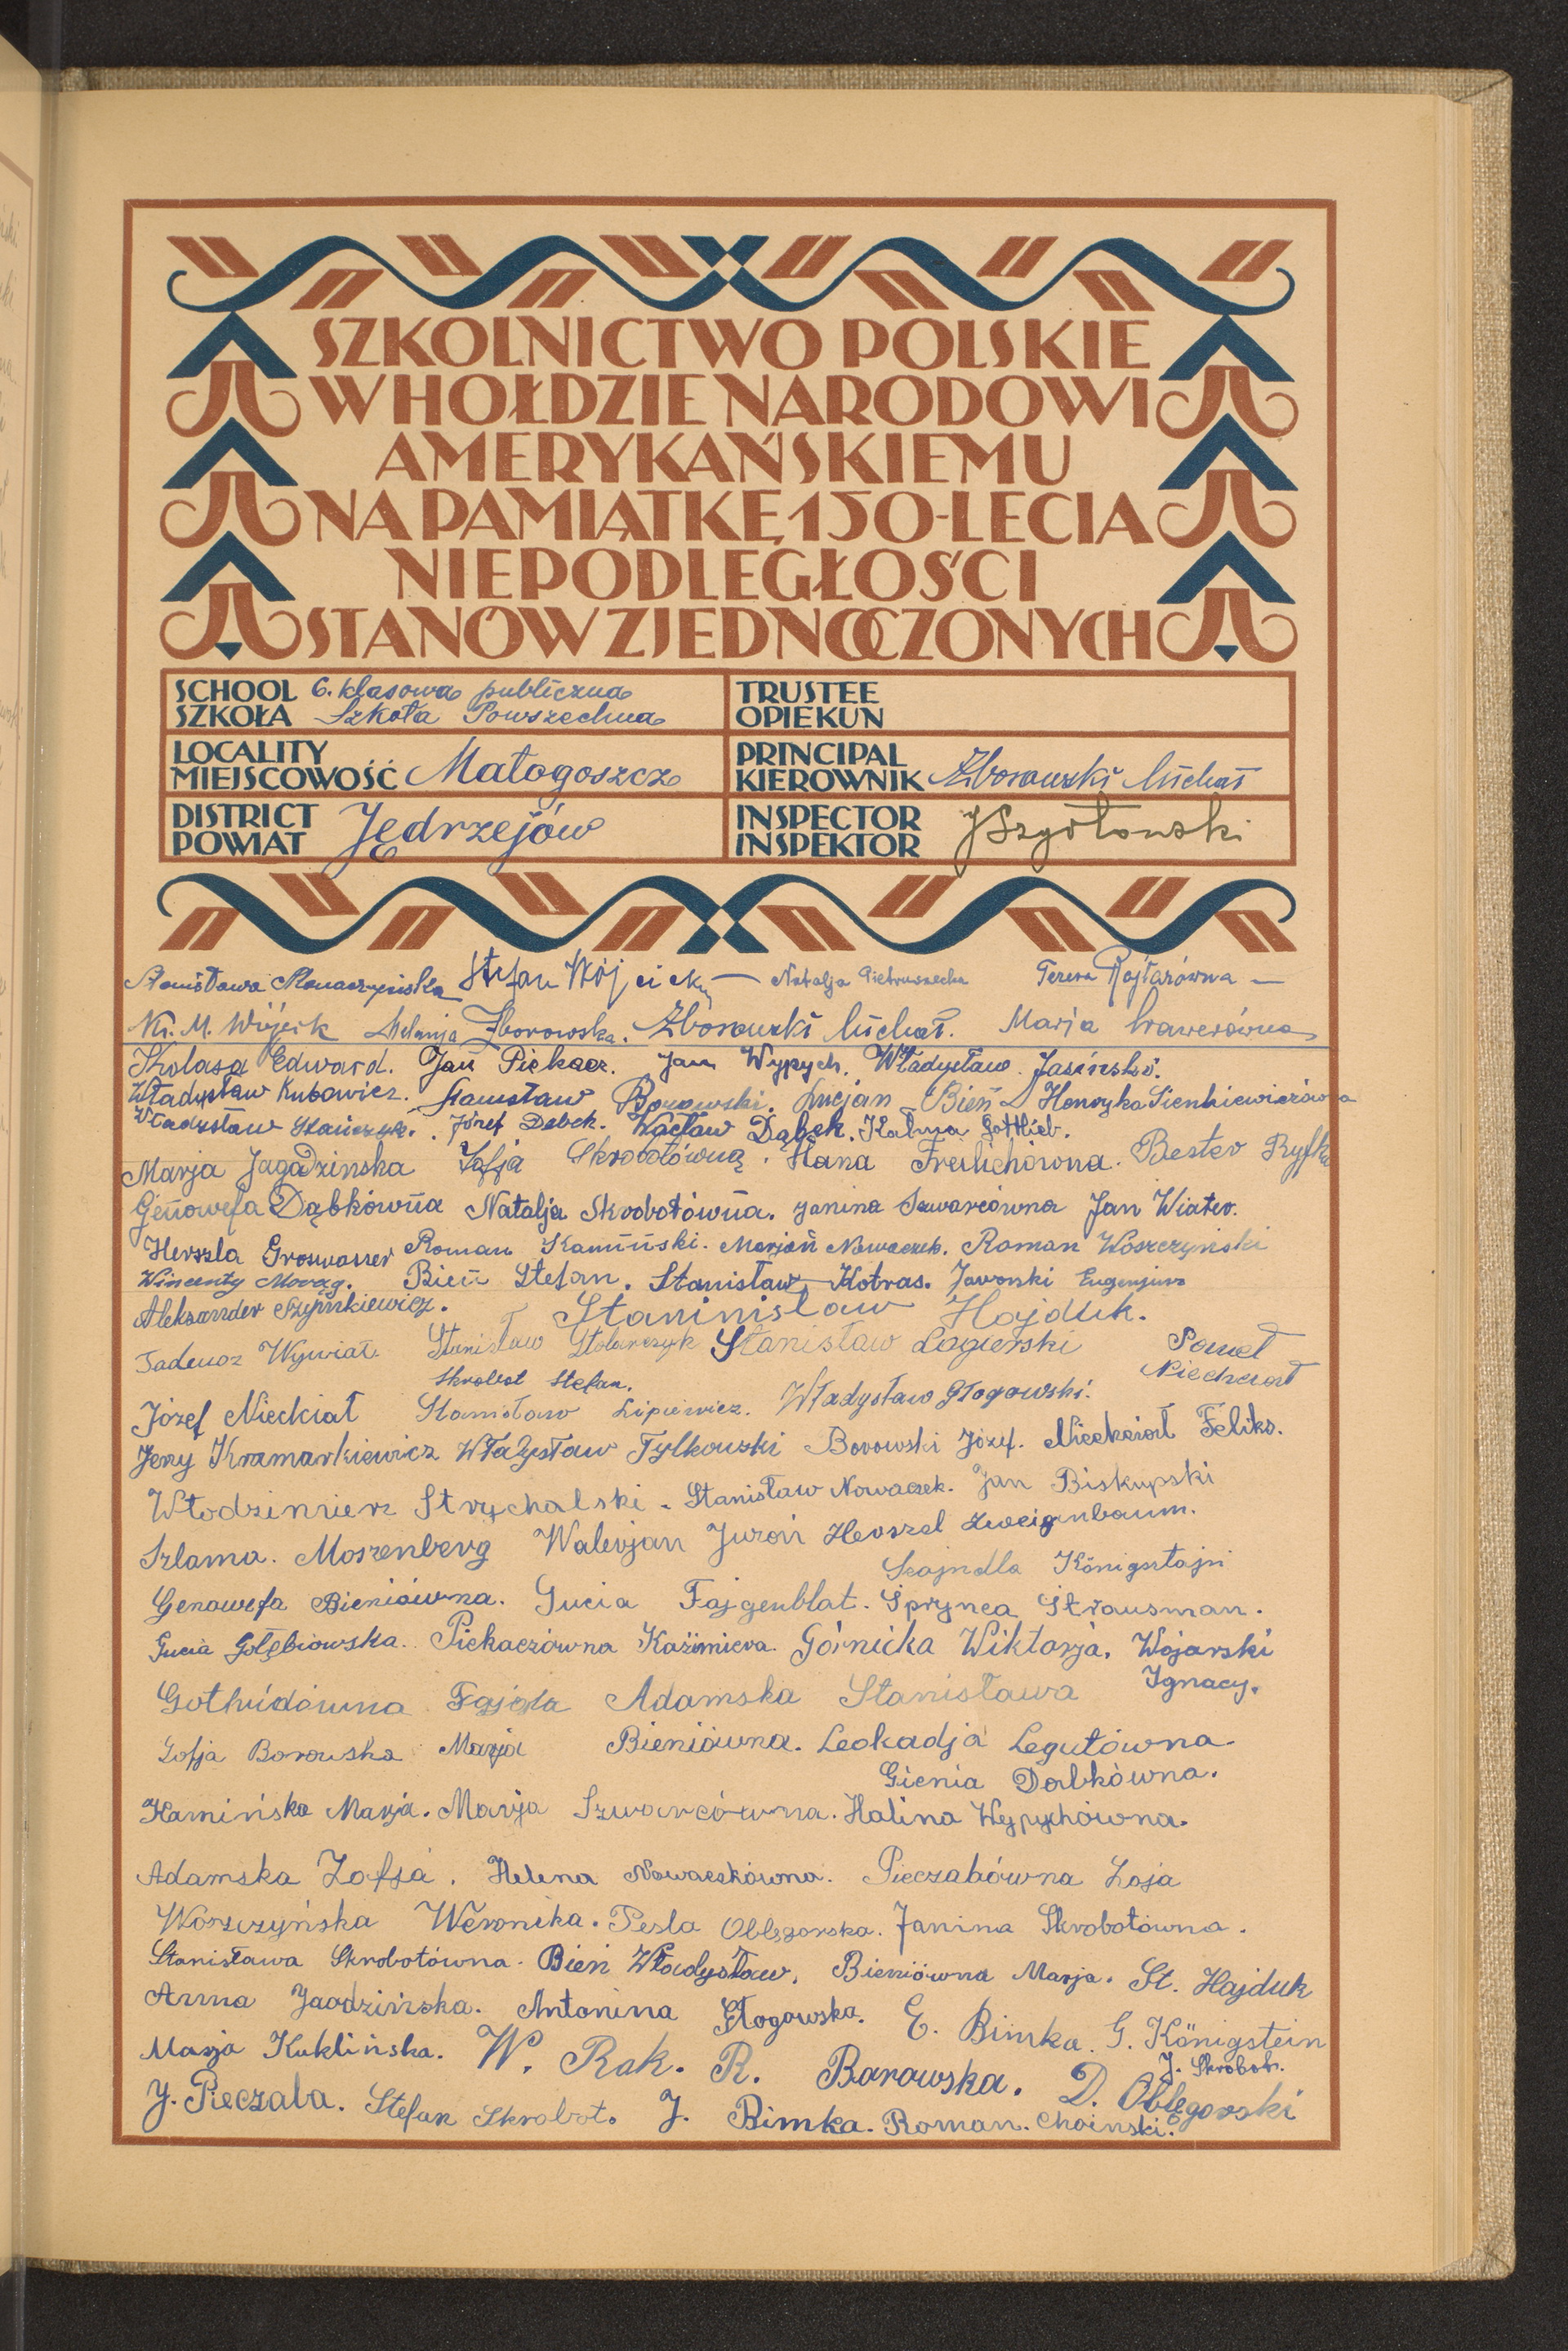 SZKOLNICTWO POLSKIE
W HOŁDZIE NARODOWI
AMERYKAŃSKIEMU
NA PAMIĄTKĘ 150-LECIA
NIEPODLEGŁOŚCI
STANÓW ZJEDNOCZONYCH
SCHOOL 6. klasowa publiczna
SZKOŁA Szkoła Powszechna
TRUSTEE
OPIEKUN
LOCALITY
MIEJSCOWOŚĆ Małogoszcz
PRINCIPAL
KIEROWNIK Zborowski Michał
DISTRICT
POWIAT Jędrzejów
INSPECTOR
INSPEKTOR
Stanisława Stefan Wójcicki Natalja Pietruszecka Teresa Rojtarówna
Ks. M. Wójcik Melanja Zborowska. Zborowski Michał. Marja
Skolasa Edward. Jan Piekacz. Jan Wypych. Władysław Jasiński.
Władysław Kubowicz. Stanisław Borowski. Lucjan Bień Henryka Sienkiewiczówna
Władysław Stańczyk. Józef Dąbek. Wacław Dąbek. Kalma Gottlieb.
Marja Jagadzinska Zofja Skrobotówna. Hana Freilichówna. Bester Ryfka
Genowefa Dąbkówna Natalja Skrobotówna. Janina Szwarcówna Jan Wiater.
Herszla Groswasser Roman Kamiński. Marjan Nowaczek. Roman Woszczyński
Wincenty Morąg. Bień Stefan. Stanisław Kotras. Jaworski Eugenjusz
Aleksander Szymkiewicz. Staninisław Hajduk.
Tadeusz Wywiał. Stanisław Stolarczyk Stanisław Łagierski Paweł
Skrobot Stefan. Niechciał
Józef Nieckiał Stanisław Lipiewicz. Władysław Głogowski.
Jerzy Kramarkiewicz Władysław Tylkowski Borowski Józef. Niechciał Feliks.
Włodzimierz Strychalski. Stanisław Nowaczek. Jan Biskupski
Szlama. Moszenberg Walerjan Juroń Herszel Zweigenbaum.
Szajndla Königsztajn
Genowefa Bieniówna. Gucia Fajgenblat. Sprynca Sztrausman.
Gucia Gołębiowska. Piekaczówna Kazimiera. Górnicka Wiktorja. Wojarski
Ignacy.
Fajgla Adamska Stanisława
Zofja Borowska Marja Bieniówna. Leokadja Legutówna.
Gienia Dąbkówna.
Kamińska Marja. Marja Szwarcówna. Halina Wypychówna.
Adamska Zofja. Helena Nowaczkówna. Pieczabówna Zoja
Woszczyńska Weronika. Pesla Oblęgorska. Janina Skrobotówna.
Stanisława Skrobotówna. Bień Władysław. Bieniówna Marja. St. Hajduk
Anna Jaodzińska. Antonina Głogowska. E. Bimka. G. Königstein
Marja Kuklińska. W. Rak. R. Barowska. J. Skrobot.
D. Oblęgorski
J. Pieczaba. Stefan Skrobot. J. Bimka. Roman. Choinski.